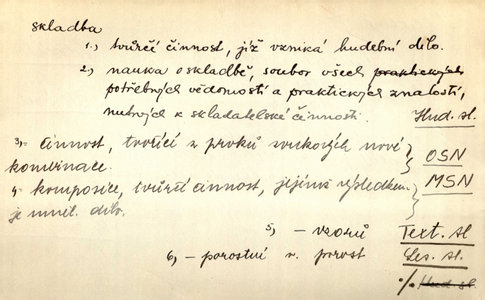 skladba
1.) tvůrčí činnost, jíž vzniká hudební dílo.
2.) nauka o skladbě, soubor všech praktických
potřebných vědomostí a praktických znalostí,
nutných k skladatelské činnosti. Hud. sl.
3,- činnost, tvořící z prvků zvukových nové
kombinace. OSN
4,- komposice, tvůrčí činnost, jejímž výsledkem MSN
je uměl. dílo.
5, - vzorů Text. sl
6, - porostní v. porost Les. sl.
% Hud sl.